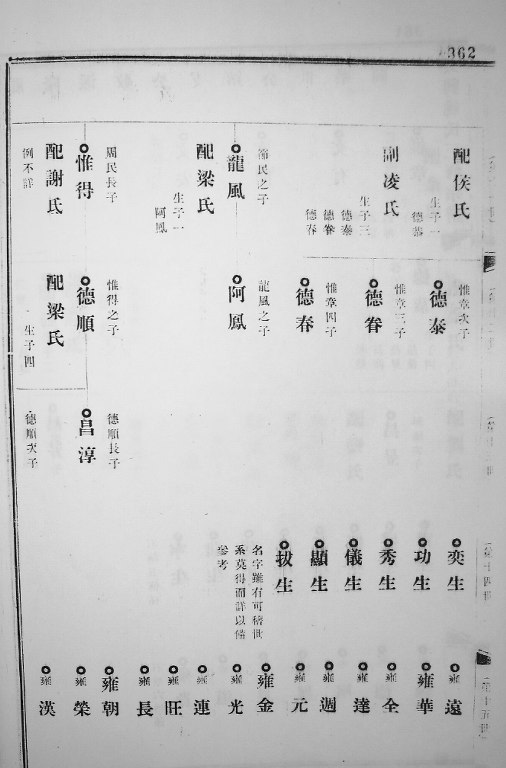 362
配侯氏
生子一
副凌氏
生子三
德泰
德眷
德春
節民之子
龍風
配梁氏
生子一
阿鳳
周民長子
惟得
配謝氏
例不詳
惟章次子
德泰
惟章三子
德眷
惟章四子
德春
龍風之子
阿鳳
惟得之子
德順
配梁氏
生子四
德順長子
昌淳
德順次子
奕生
功生
秀生
儀生
顯生
拔生
名字雖有可稽世
系莫得而詳以俻
參考
雍遠
雍華
雍全
雍達
雍週
雍元
雍金
雍光
雍連
雍旺
雍長
雍朝
雍榮
雍漢